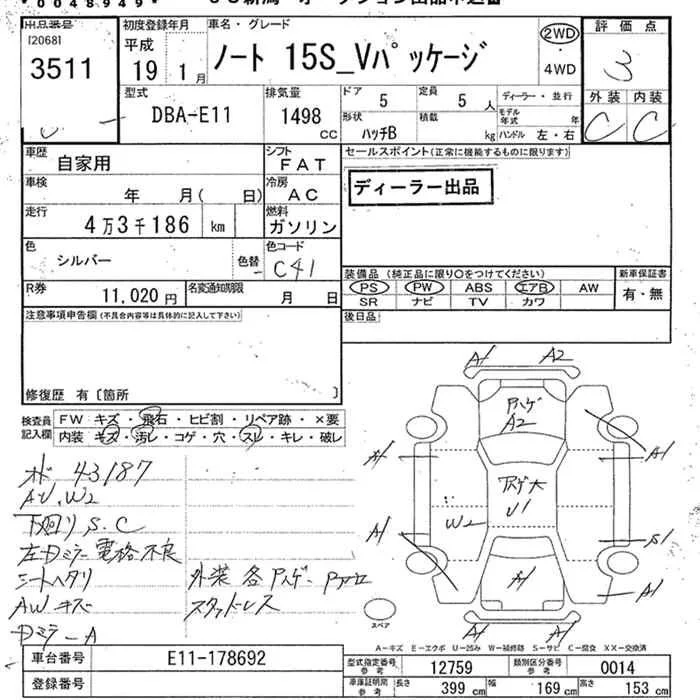 * 0048949 *
出品番号
[2068]
3511
初度登録年月
平成
19 1月
車名・グレード
ノート 15S_Vパッケージ
2WD
・
4WD
評価点
3
外装 内装
C C
型式
DBA-E11
排気量
1498
CC
ドア 5
定員 5 人
ディーラー・並行
形状
ハッチB
積載
kg
モデル年式 年
ハンドル 左・右
車歴
自家用
シフト
FAT
セールスポイント(正常に機能するものに限ります)
ディーラー出品
車検
年 月( 日)
冷房
AC
走行
4万3千186 km
燃料
ガソリン
色
シルバー
色替 -
色コード
C41
装備品(純正品に限り○をつけてください)
PS PW ABS エアB AW
SR ナビ TV カワ
新車保証書
有・無
R券
11,020円
名変通知期限
月 日
後日品
注意事項申告欄(不具合内容等は具体的に記入して下さい)
修復歴 有〔箇所 〕
検査員記入欄
FW キズ・飛石・ヒビ割・リペア跡・×要
内装 キズ・汚レ・コゲ・穴・スレ・キレ・破レ
43187
AU.W2
下廻りS.C
左Dミラー電格不良
シートヘタリ
AWキズ
Dミラー A
外装各
スタッドレス
A1 A2
A2
A1 A1
U1
W2
A1 S1
A1
A1
A1 A1
スペア
A-キズ E-エクボ U-凹み W-補修跡 S-サビ C-腐食 XX-交換済
車台番号
E11-178692
登録番号
型式指定番号 参考
12759
類別区分番号 参考
0014
車庫証明用 参考
長さ 399 cm
幅 169 cm
高さ 153 cm